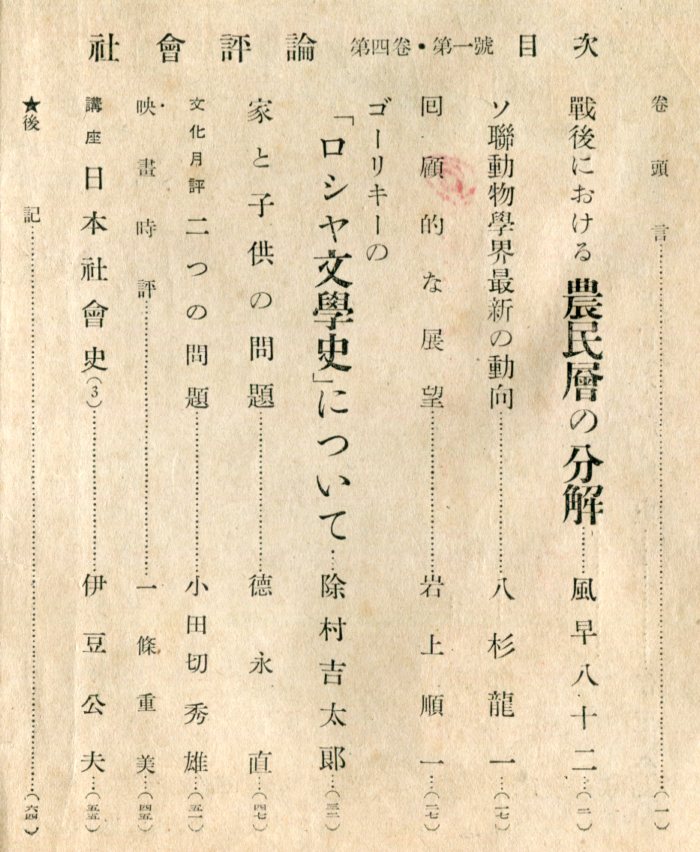 社會評論 第四卷・第一號 目次
卷頭言……(一)
戰後における農民層の分解……風早八十二……(二)
ソ聯動物學界最新の動向……八杉龍一……(一七)
回顧的な展望……岩上順一……(二七)
ゴーリキーの
「ロシヤ文學史」について……除村吉太郎……(三二)
家と子供の問題……德永直……(四七)
文化月評 二つの問題……小田切秀雄……(五一)
映畫時評……一條重美……(四五)
講座 日本社會史(3)……伊豆公夫……(五五)
★後記……(六四)